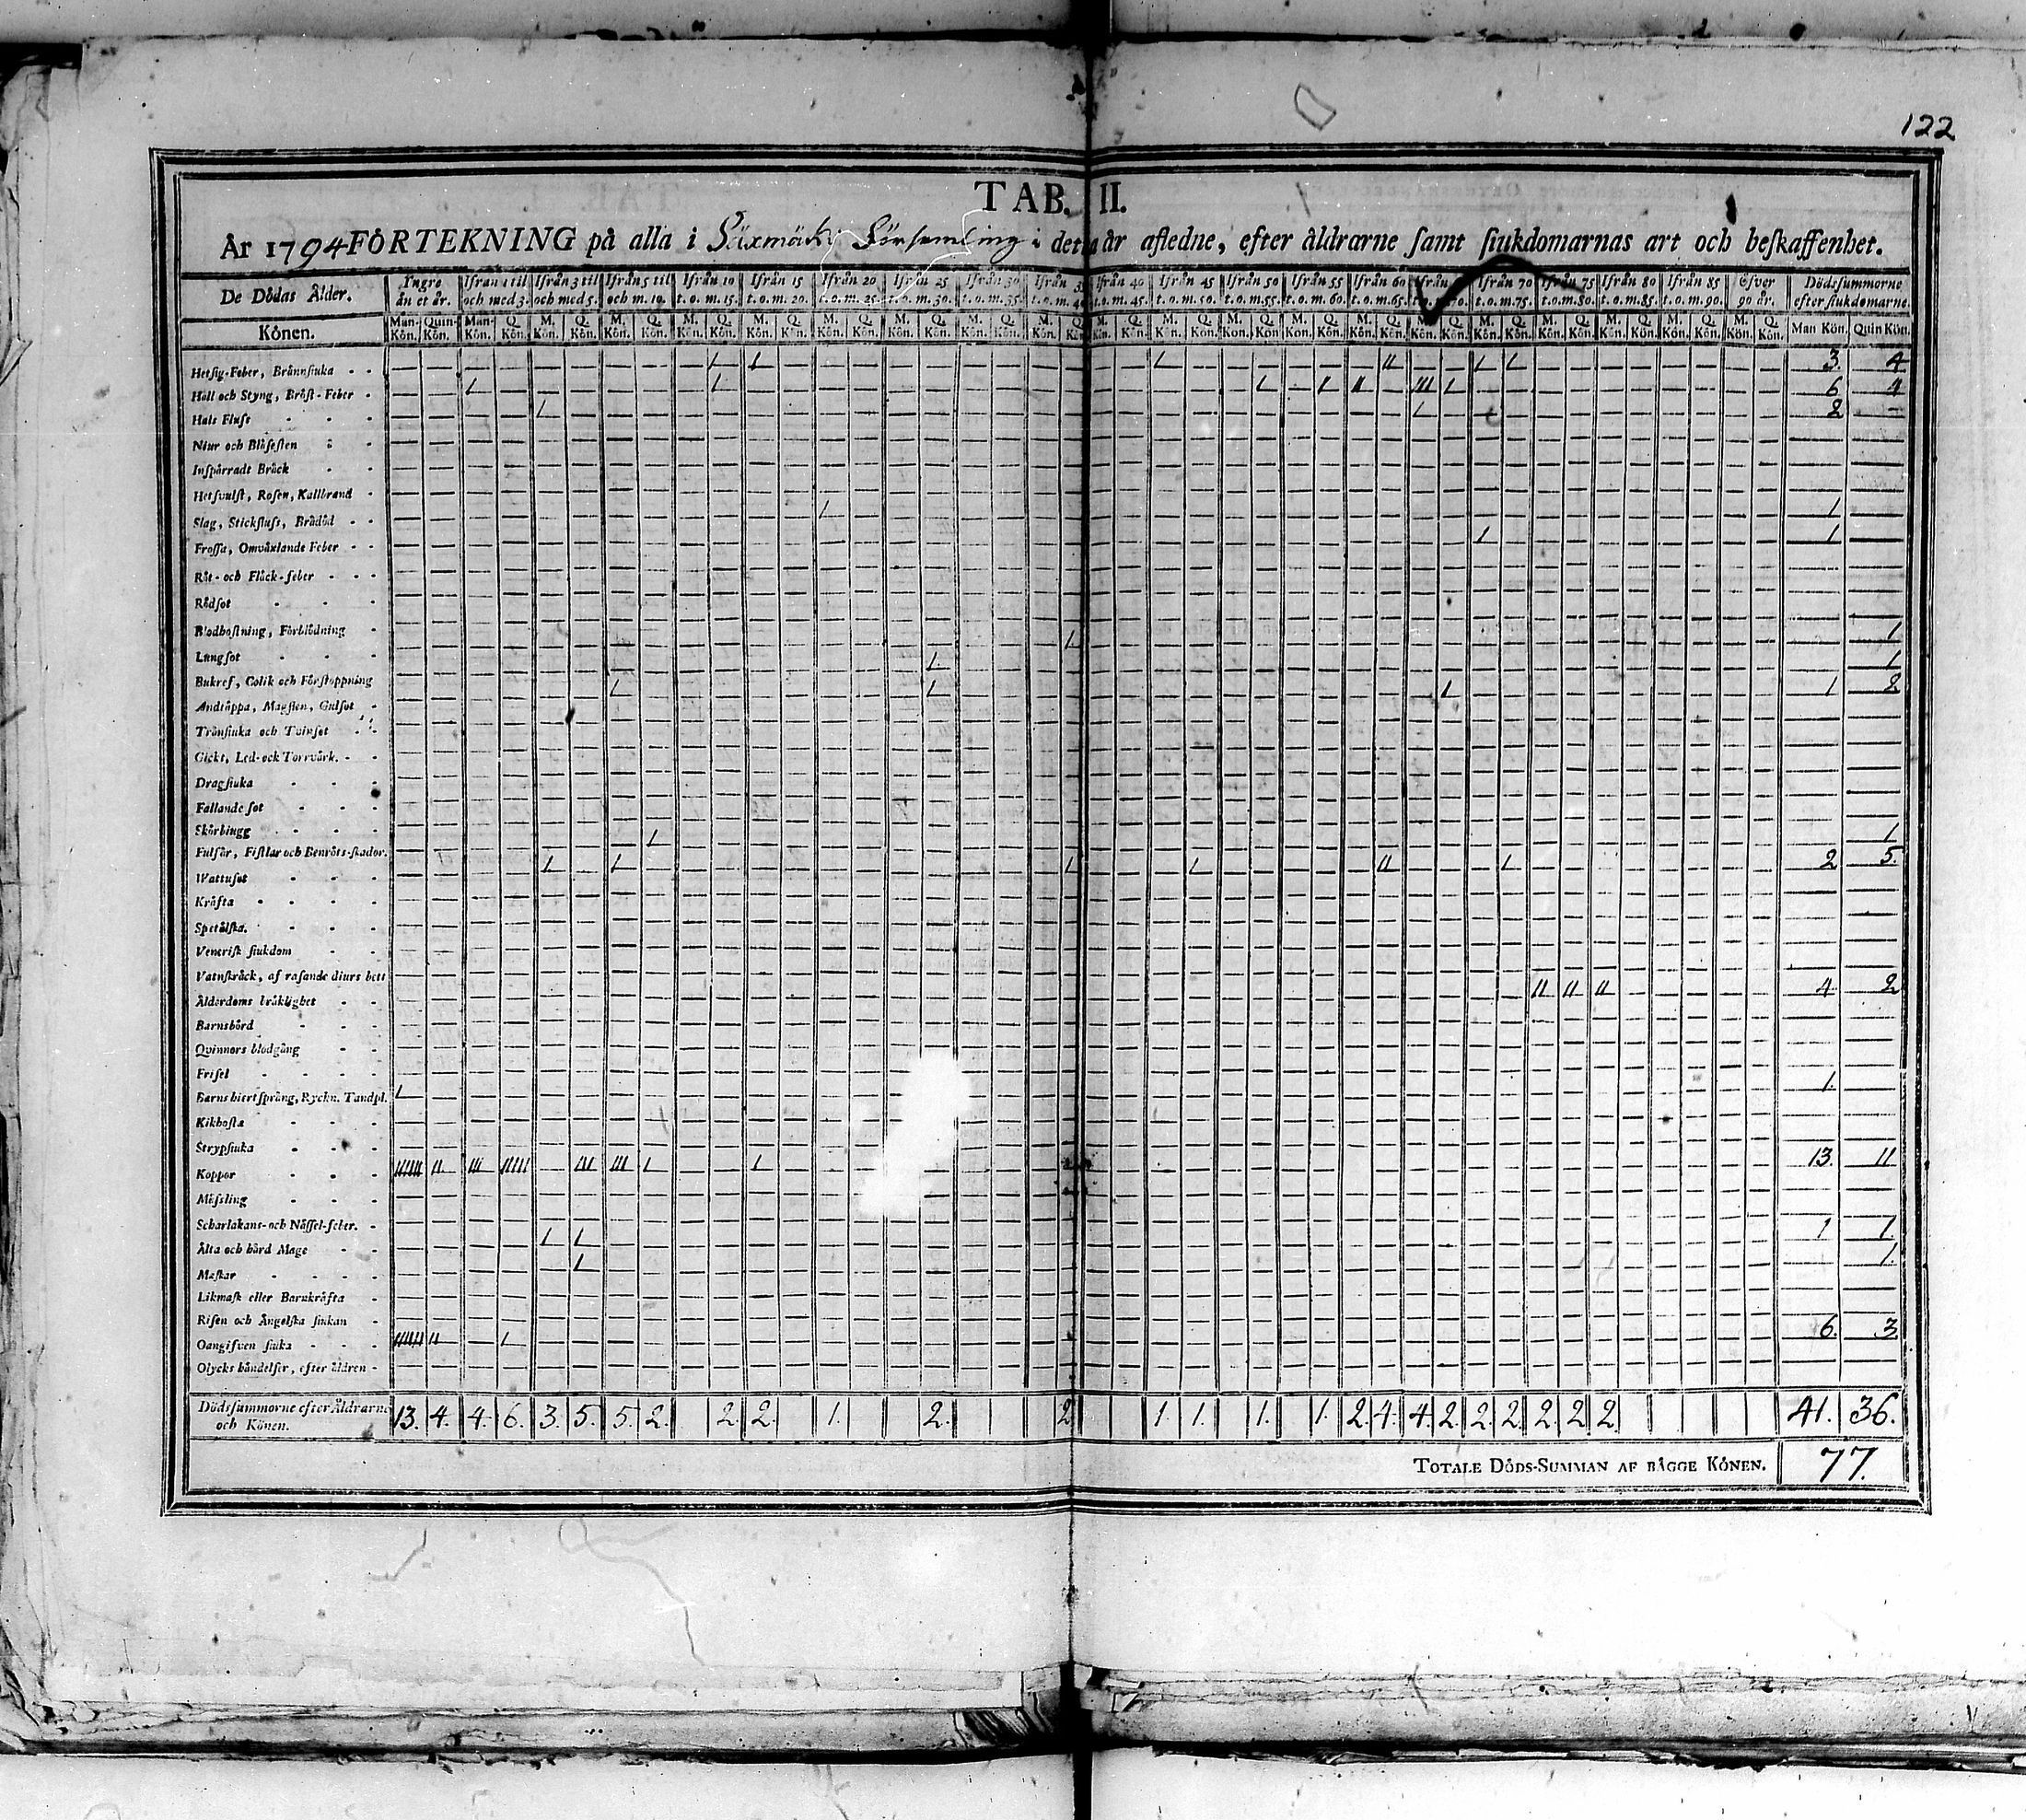 122
TAB. II.
År 1794 FÖRTEKNING på alla i Säxmäki Församling i detta år afledne, efter åldrarne samt siukdomarnas art och beskaffenhet.
De Dödas Ålder. Yngre än et år. Ifrån 1 til och med 3. Ifrån 3 til och med 5. Ifrån 5 til och m. 10. Ifrån 10 t.o.m. 15. Ifrån 15 t.o.m. 20. Ifrån 20 t.o.m. 25. Ifrån 25 t.o.m. 30. Ifrån 30 t.o.m. 35. Ifrån 3 t.o.m. 40 Ifrån 40 t.o.m. 45. Ifrån 45 t.o.m. 50. Ifrån 50 t.o.m. 55. Ifrån 55 t.o.m. 60. Ifrån 60 t.o.m. 65. Ifrån t.o. 70. Ifrån 70 t.o.m. 75. Ifrån 75 t.o.m. 80. Ifrån 80 t.o.m. 85. Ifrån 85 t.o.m. 90. Öfver 90 år. Dödssummorne efter siukdomarne.
Könen. Man-Kön. Quin-Kön. Man-Kön. Q. Kön. M. Kön. Q. Kön. M. Kön. Q. Kön. M. Kön. Q. Kön. M. Kön. Q. Kön. M. Kön. Q. Kön. M. Kön. Q. Kön. M. Kön. Q. Kön. M. Kön. Q. Kön. M. Kön. Q. Kön. M. Kön. Q. Kön. M. Kön. Q. Kön. M. Kön. Q. Kön. M. Kön. Q. Kön. M. Kön. Q. Kön. M. Kön. Q. Kön. M. Kön. Q. Kön. M. Kön. Q. Kön. M. Kön. Q. Kön. M. Kön. Q. Kön. Man Kön. Quin Kön.
Hetsig-Feber, Brännsiuka - - 1 1 1 11 1 1 3. 4
Håll och Styng, Bröst-Feber - 1 1 1 1 11 111 1 6. 4
Hals Fluss - - 1 1 2
Niur och Blåsesten - -
Inspärradt Bråck - -
Hetsvulst, Rosen, Kallbrand -
Slag, Stickfluss, Brådöd - - 1 1
Frossa, Omväxlande Feber - - 1 1
Röt- och Fläck-feber - - -
Rödsot - - -
Blodhostning, Förblödning - 1 1
Lungsot - - - 1. 1
Bukref, Colik och Förstoppning 1 1 1 1 2
Andtäppa, Magsten, Gulsot -
Trånsiuka och Tvinsot - -
Gickt, Led- och Torrvärk. - -
Dragsiuka - - -
Fallande sot - - -
Skörbiugg - - -
Fulsår, Fistlar och Benröts-skador. 1 1
Wattusot - - - 1 1 1 1 11 1 2 5.
Kräfta - - - -
Spetälska. - - -
Venerisk siukdom - -
Vatnskräck, af rasande diurs bett
Ålderdoms bräklighet - - 11 11 11 4. 2
Barnsbörd - - - -
Qvinnors blodgång - -
Frisel - - - - -
Barns hiertsprång, Ryckn. Tandpl. 1 1.
Kikhosta - - -
Strypsiuka - - -
Koppor - - - 111111 11 111 11111 111 111 1 1 13. 11
Mässling - - -
Scharlakans- och Nässel-feber. -
Älta och hård Mage - - 1 1 1 1.
Maskar - - - - 1 1.
Likmask eller Barnkräfta -
Risen och Ängelska siukan -
Oangifven siuka - - - 111111 11 1 6. 3
Olycks händelser, efter äldren -
Dödssummorne efter Åldrarne och Könen. 13. 4. 4. 6. 3. 5. 5. 2. 2. 2. 1. 2. 2 1. 1. 1. 1. 2. 4. 4. 2. 2. 2. 2. 2. 2. 41. 36.
TOTALE DÖDS-SUMMAN AF BÄGGE KÖNEN. 77.